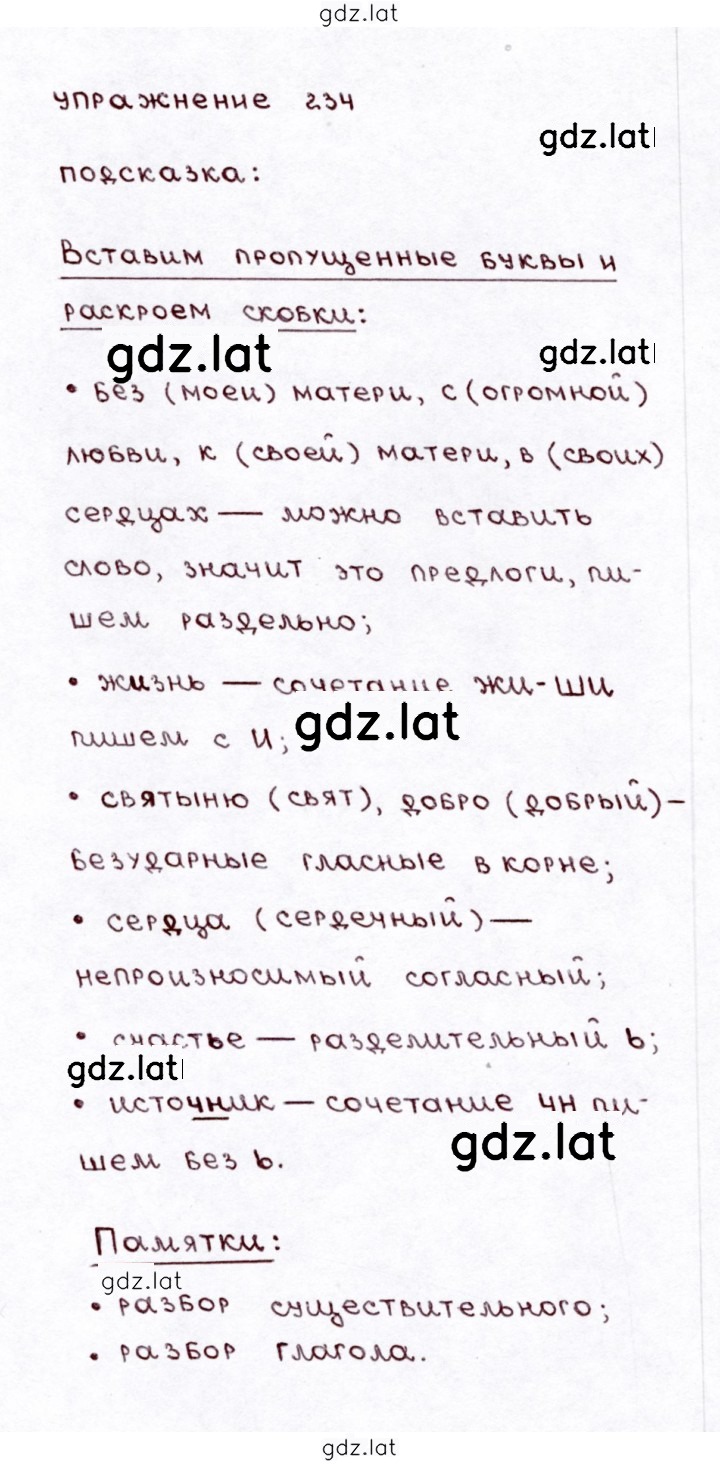 gdz.lat
упражнение 234
gdz.lat
подсказка:
Вставим пропущенные буквы и
раскроем скобки:
gdz.lat gdz.lat
• без (моей) матери, с (огромной)
любви, к (своей) матери, в (своих)
сердцах — можно вставить
слово, значит это предлоги, пи-
шем раздельно;
• жизнь — сочетание жи-ши
gdz.lat
пишем с и;
• святыню (свят), добро (добрый) —
безударные гласные в корне;
• сердца (сердечный) —
непроизносимый согласный;
• счастье — разделительный ь;
gdz.lat
• источник — сочетание чн пи-
gdz.lat
шем без ь.
Памятки:
gdz.lat
• разбор существительного;
• разбор глагола.
gdz.lat